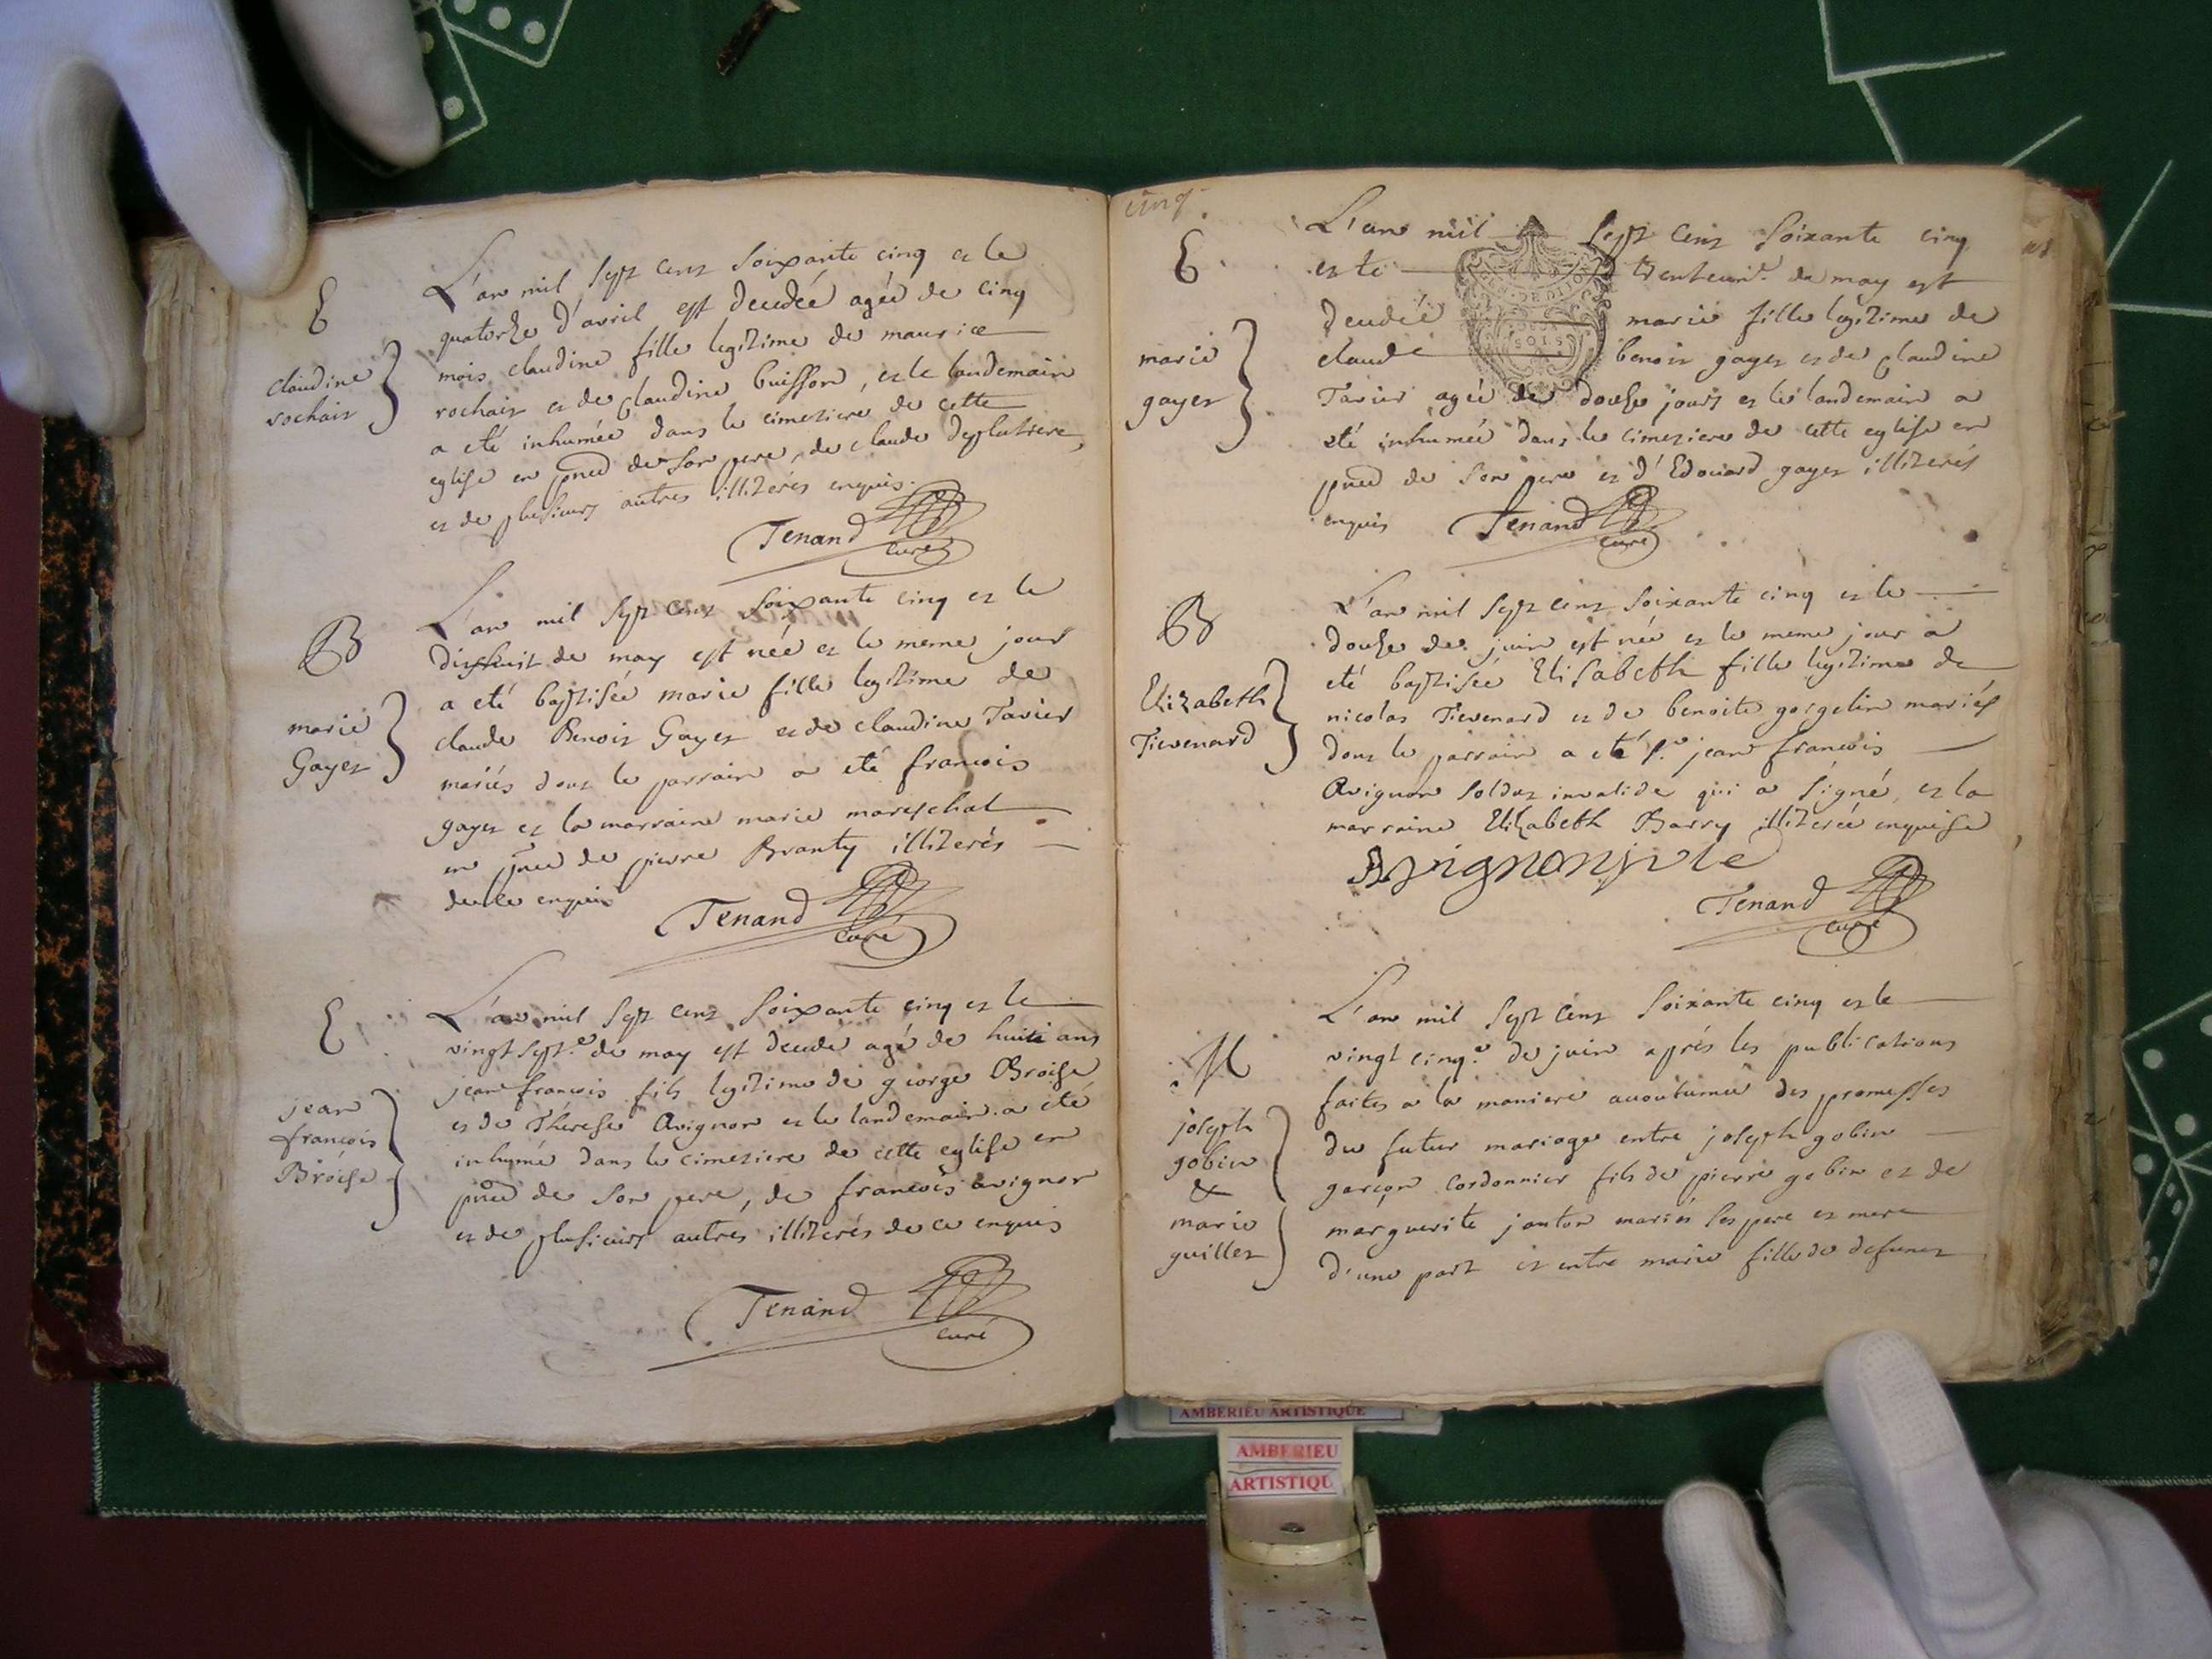 E
claudine
rochaix
L'an mil sept cent soixante cinq et le
quatorze d'avril est decedée agée de cinq
mois claudine fille legitime de maurice
rochaix et de claudine buisson, et le landemain
a eté inhumée dans le cimetiere de cette
eglise en pnce de son pere, de claude
et de plusieurs autres illiterés enquis.
Tenand
curé
B
marie
Gayet
L'an mil sept cent soixante cinq et le
dixhuit de may est née et le meme jour
a eté baptisée marie fille legitime de
claude Benoit Gayet et de claudine Tavier
mariés dont le parrain a eté francois
gayet et la marraine marie mareschal
en pnce de pierre Branty illiterés
de ce enquis
Tenand
curé
E
jean
françois
Broise
L'an mil sept cent soixante cinq et le
vingt sept.e de may est decedé agé de huit ans
jean francois fils legitime de george Broise
et de Thérese Avignon et le landemain a eté
inhumé dans le cimetiere de cette eglise en
pnce de son pere, de francois avignon
et de plusieurs autres illiterés de ce enquis
Tenand
curé
cinq.
E
marie
gayet
L'an mil sept cent soixante cinq
et le trenteun.e de may est
decedée marie fille legitime de
claude benoit gayet et de claudine
Tavier agée de douze jours et le landemain a
eté inhumée dans le cimetiere de cette eglise en
pnce de son pere et d'Edouard gayet illiterés
enquis
Tenand
curé
B
Elizabeth
Tievenard
L'an mil sept cent soixante cinq et le
douze de juin est née et le meme jour a
eté baptisée Elisabeth fille legitime de
nicolas Tievenard et de benoite gorgelin mariés
dont le parrain a eté s.r jean francois
Avignon soldat invalide qui a signé, et la
marraine Elizabeth Barry illiterée enquise
Tenand
curé
M
joseph
gobin
&
marie
guillet
L'an mil sept cent soixante cinq et le
vingt cinq.e de juin aprés les publications
faites a la maniere acoutumée des promesses
du futur mariage entre joseph gobin
garçon cordonnier fils de pierre gobin et de
marguerite janton mariés ses pere et mere
d'une part et entre marie fille de defunct
AMBERIEU ARTISTIQUE
AMBERIEU
ARTISTIQU